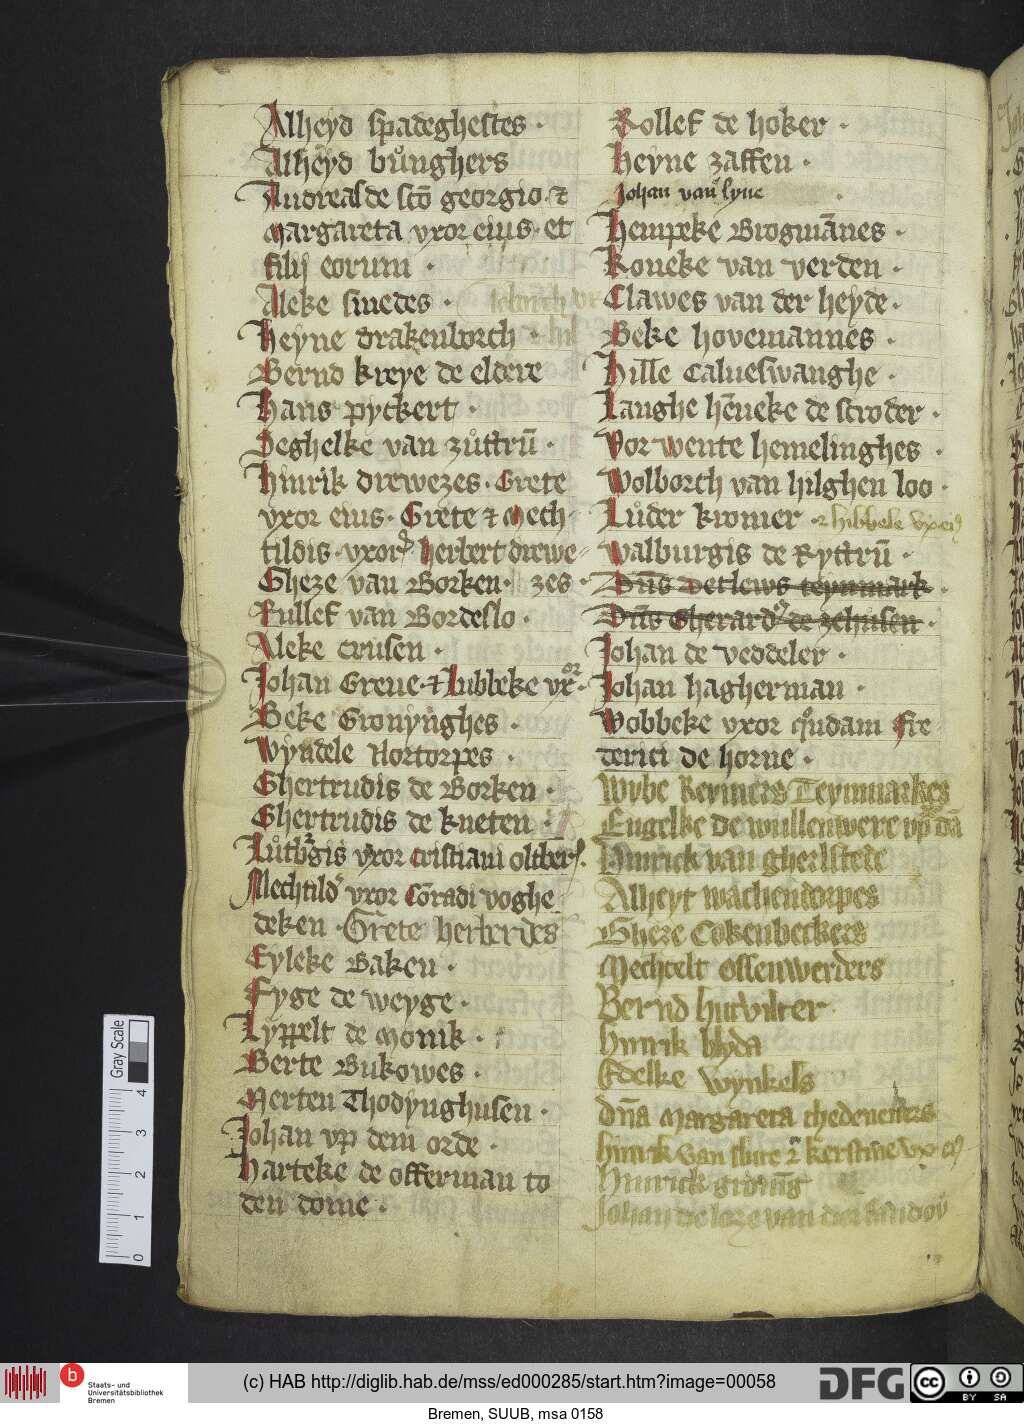 Alheyd spadeghestes ·
Alheyd bůnghers
Andreas de scō georgio · et
Margareta vxor eius · et
filij eorum ·
Aleke smedes ·
Heyne drakenborch ·
Bernd kreye de eldere
Hans pyckert ·
Seghelke van zůttrū ·
Hinrik drewezes · Grete
vxor eius · Grete et Mech
tildis · vxor herbert drewe
Gheze van Borken · zes ·
Fullef van Bordeslo ·
Aleke crusen ·
Johan Greue · et Lubbeke vxor ·
Beke Gronynghes ·
Wyndele Nortorpes ·
Ghertrudis de Borken ·
Ghertrudis de kneten ·
Lůtbgis vxor cristiani oltbers ·
Mechtild vxor Cōradi voghe
deken · Grete herberdes
Eyleke Baken ·
Fyge de weyge ·
Lyppelt de Monik ·
Berte Bukowes ·
Merten Thodynghusen ·
Johan vp dem orde ·
Harteke de offerman to
den dome ·
Rollef de hoker ·
Heyne zaffen ·
Johan van lyne
Hempeke Brogmānes ·
Roneke van verden ·
Clawes van der heyde ·
Beke hovemannes ·
Hille Calueswanghe ·
Langhe hēneke de scroder ·
Vor wente hemelinghes ·
Wolborch van hilghen loo ·
Lůder kromer · et hibbele vx ei
Walburgis de Ryttrū ·
Dn̄s Detlews teynmark ·
Dn̄s Gherard de zehusen ·
Johan de veddeler ·
Johan hagherman ·
Wobbeke vxor quōdam fre
derici de horne ·
Wybe Reyners Teynmarkes
Engelke de wullenwere vp dā
Hinrick van gherlstede
Alheyt wachendorpes
Gheze Cokenbeckers
Mechtelt Ossenwerders
Bernd hutvilter
hinrik blyda
Edelke wynkels
dn̄a Margareta
hinrik van flute et kerstine vx ei
Hinrick
Johan de van der
Gray Scale
4
3
2
1
0
b
Staats- und
Universitätsbibliothek
Bremen
(c) HAB http://diglib.hab.de/mss/ed000285/start.htm?image=00058
DFG
cc
BY
SA
Bremen, SUUB, msa 0158